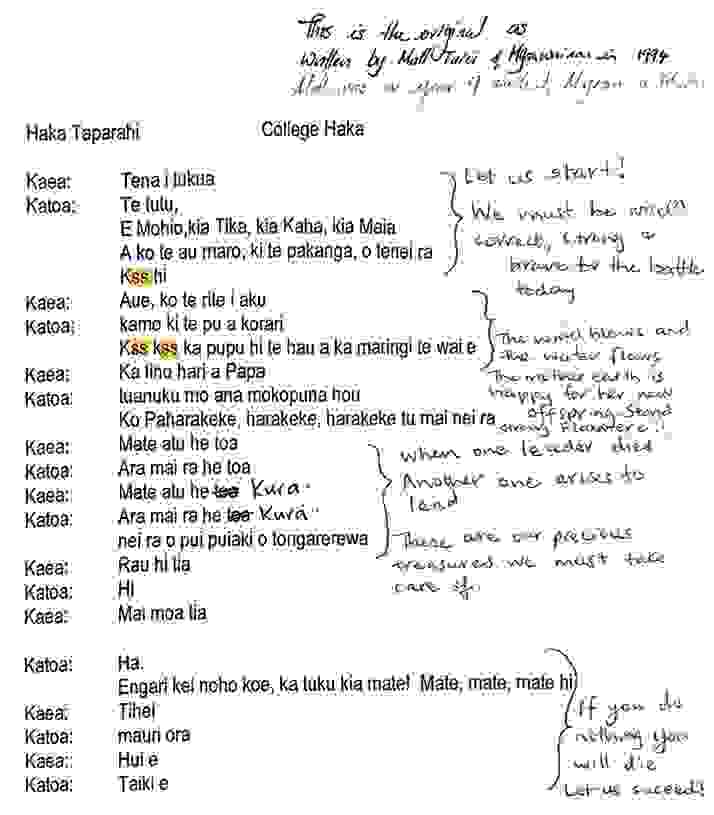 This is the original as
written by Matt Tarei of Ngaruawahia in 1994
Haka Taparahi College Haka
Kaea: Tena i tukua
Let us start!
Katoa: Te tutu,
E Mohio,kia Tika, kia Kaha, kia Maia
We must be
A ko te au maro, ki te pakanga, o tenei ra
correct, strong &
Kss hi
brave for the battle
today
Kaea: Aue, ko te rite i aku
Katoa: kamo ki te pu a korari
Kss kss ka pupu hi te hau a ka maringi te wai e
The wind blows and
the water flows
Kaea: Ka tino hari a Papa
The mother earth is
Katoa: tuanuku mo ana mokopuna hou
happy for her new
Ko Paharakeke, harakeke, harakeke tu mai nei ra
offspring. Stand
strong Flaxmere!!
Kaea: Mate atu he toa
When one leader dies
Katoa: Ara mai ra he toa
Another one arises to
Kaea: Mate atu he toa Kura
lead
Katoa: Ara mai ra he toa Kura
nei ra o pui puiaki o tongarerewa
These are our precious
Kaea: Rau hi tia
treasures we must take
Katoa: Hi
care of.
Kaea: Mai moa tia
Katoa: Ha.
Engari kei noho koe, ka tuku kia mate! Mate, mate, mate hi
If you do
Kaea: Tihei
nothing you
Katoa: mauri ora
will die
Kaea:: Hui e
Let us succeed!
Katoa: Taiki e